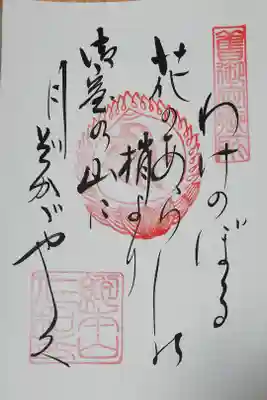 わけのぼる
花のあらしの
梢より
御室の山に
月ぞかゞやく